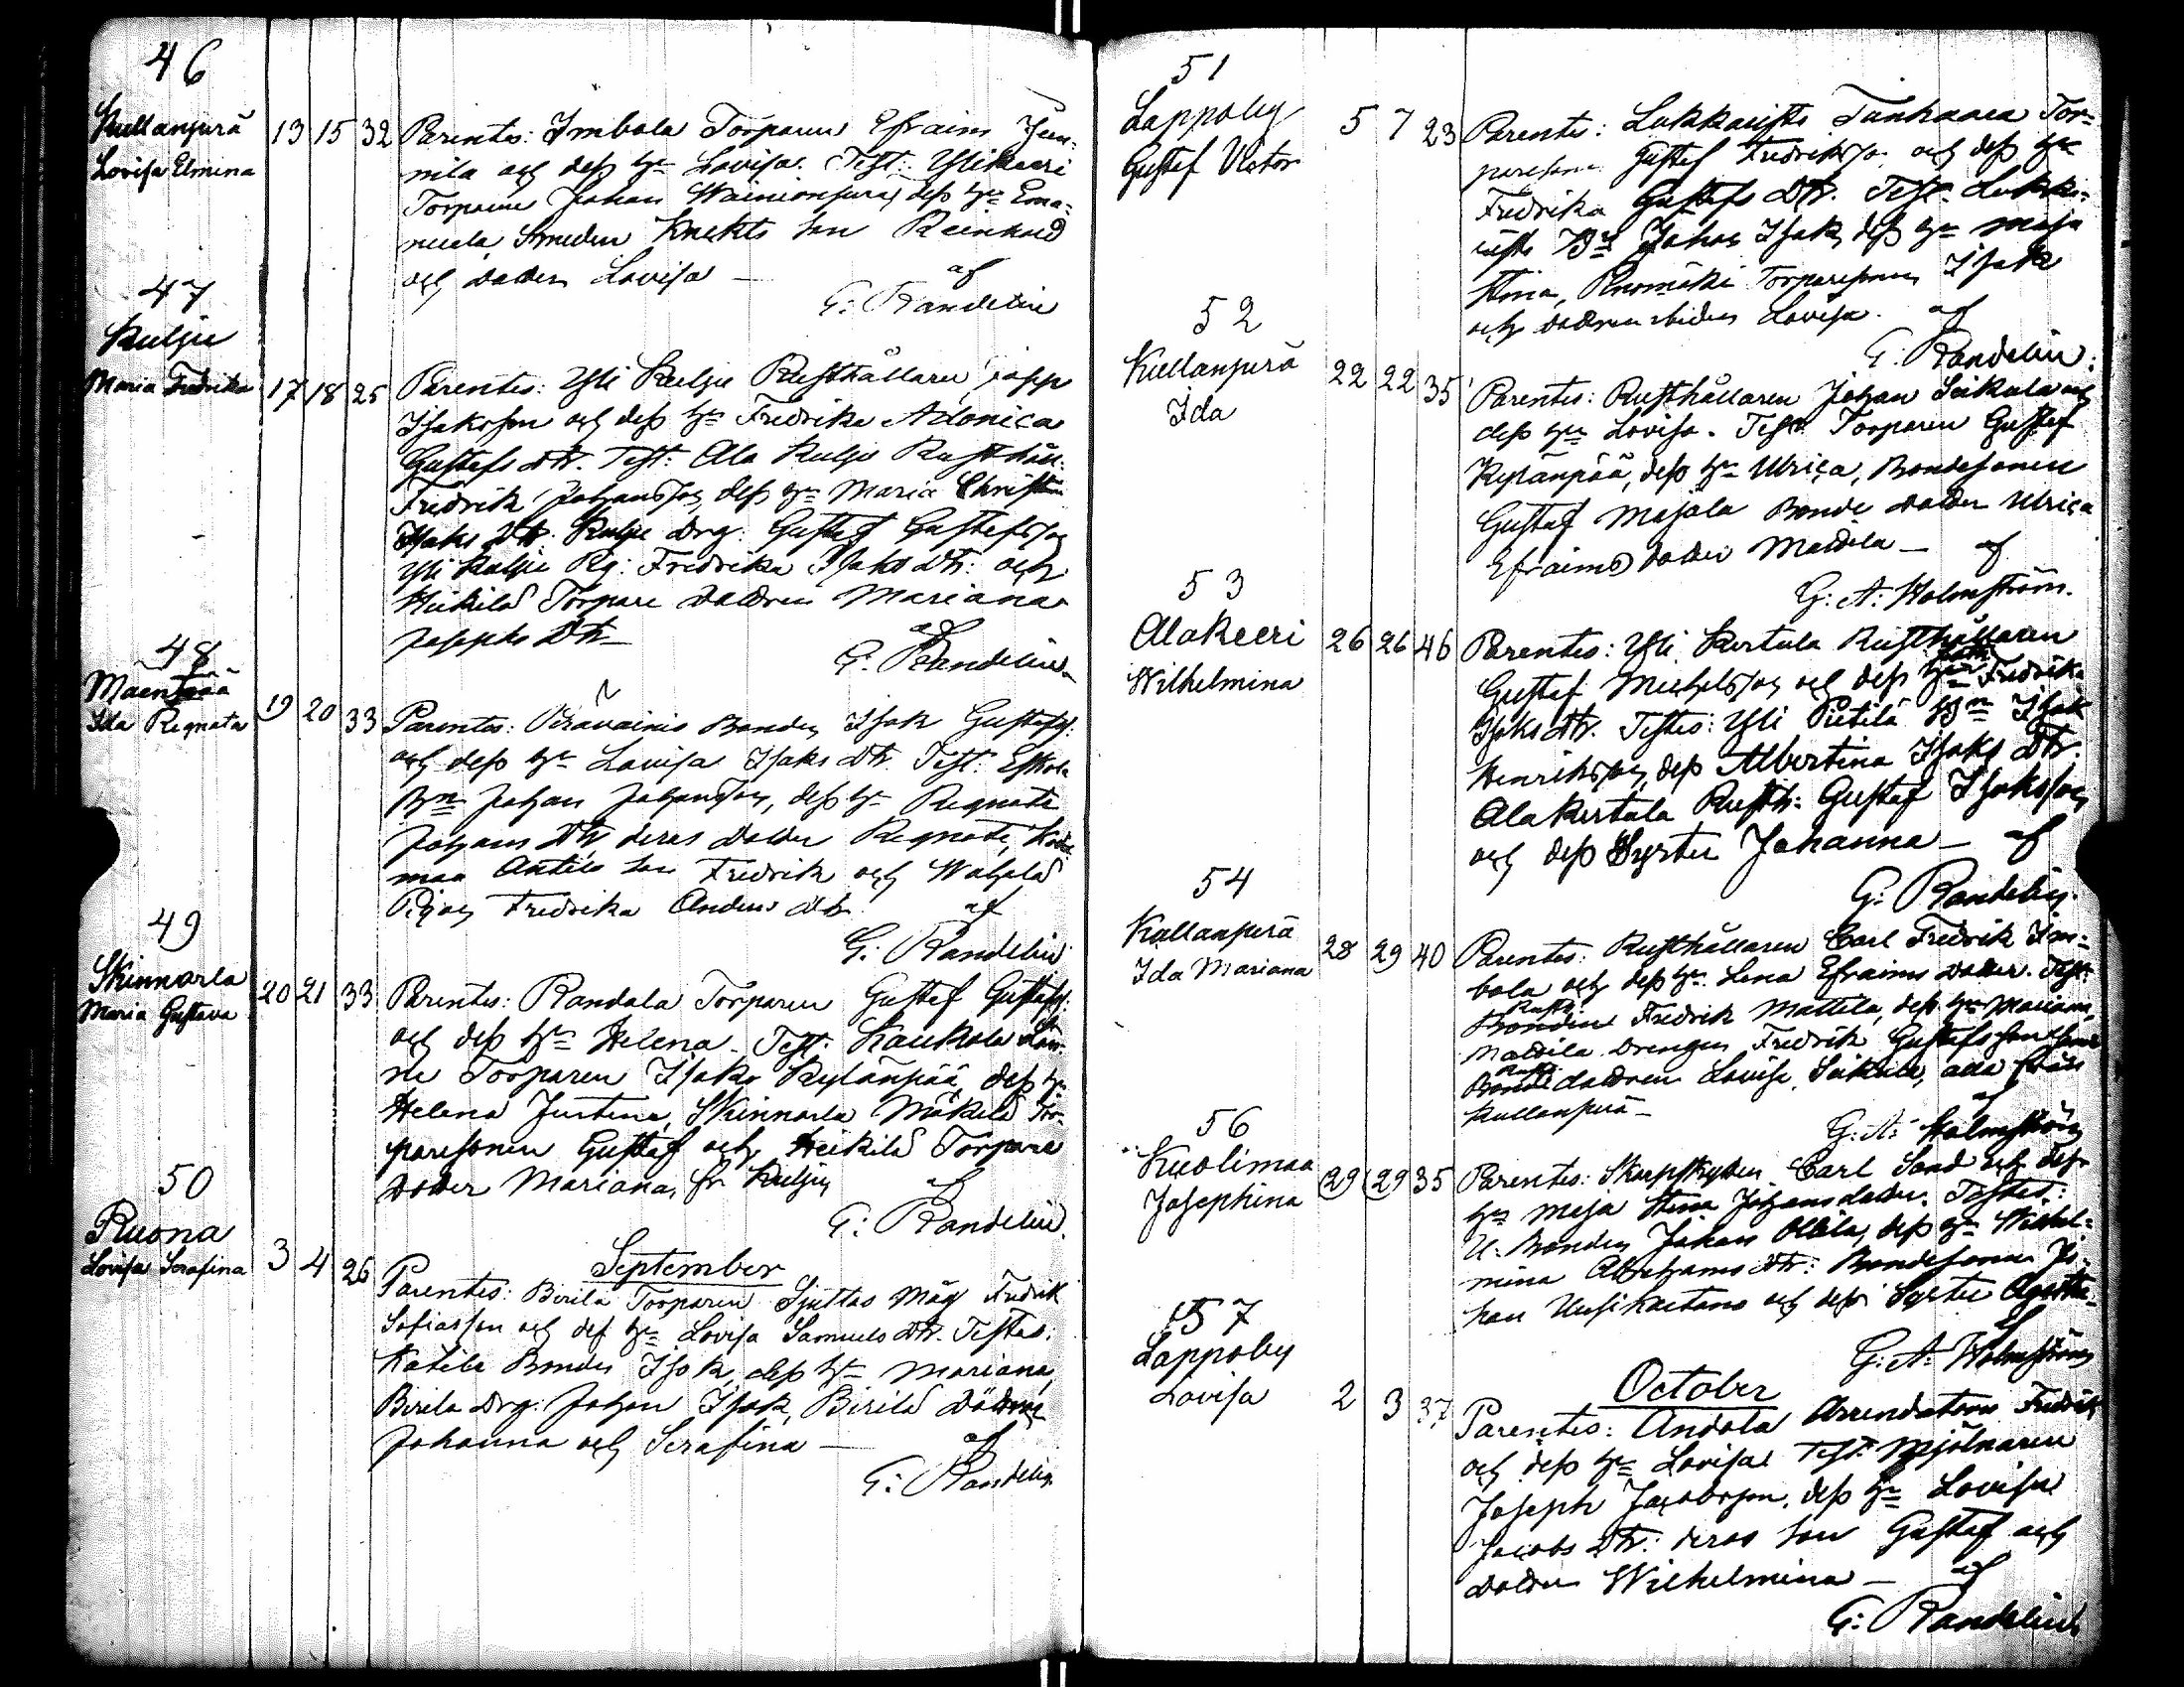 46
Kullanperä 13 15 32 Parentes: Imbola Torparen Efraim Jun-
Lovisa Elmina nila och dess h:u Lovisa. Test: Ylikeeri
Torparen Johan Wainionperä, dess h:u Ema-
nuela, Smeden Knekts son Reinhold
och dottren Lovisa — af
G: Randelin
47
Kulju
Maria Fredrika 17 18 25 Parentes: Yli Kulju Rusthållaren Josep
Isaksson och dess h:u Fredrika Adonica
Gustafs Dtr. Test: Ala Kulju Rusthåll:
Fredrik Johansson, dess h:u Maria Christina
Isaks Dtr. Kulju Drg: Gustaf Gustafsson
Yli Kulju Pig: Fredrika Isaks Dtr: och
Heikilä Torpare Dottren Mariana
Josephs Dtr — af
G: Randelin
48
Mäenpää
Ida Regnata 19 20 33 Parentes: Peravainio Bonden Isak Gustafss:
och dess h:u Lovisa Isaks Dtr. Test: Eskola
B:n Johan Johansson, dess h:u Regnata
Johans Dtr, deras Dotter Regnata,
maa Antila son Fredrik och
Pigan Fredrika Anders Dtr. af
G: Randelin
49
Skinnarla 20 21 33 Parentes: Randala Torparen Gustaf Gustafss:
Maria Gustava och dess h:u Helena. Test: Kaukola Län-
ne Torparen Isak Kylänpää, dess h:u
Helena Justina, Skinnarla Mäkelä Tor-
paresonen Gustaf och Heikilä Torpare
Dotter Mariana, fr Kulju af
G: Randelin
50
Ruona
Lovisa Serafina 3 4 26
September
Parentes: Birilä Torparen Måg Fredrik
Sofiasson och dess h:u Lovisa Samuels Dtr. Testes:
Katila Bonden Isak, dess h:u Mariana,
Birila Drg: Johan Isak, Birilä Döttrar
Johanna och Serafina — af
G: Randelin
51
Lappoby 5 7 23 Parentes: Tor-
Gustaf Victor paresonen Gustaf Fredriksson och dess h:u
Fredrika Gustafs Dtr. Test:
B:n Johan Isak, dess h:u Maja
Stina, Ruomäki Torparesonen Isak
och dottren Lovisa. af
G: Randelin.
52
Kullanperä 22 22 35 Parentes: Rusthållaren Johan Seikula och
Ida dess h:u Lovisa. Test: Torparen Gustaf
Kylänpää, dess h:u Ulrica, Bondesonen
Gustaf Majala Bonde dotter Ulrica
Efraims dotter Mattila — af
G: A: Holmström.
53
Alakeeri 26 26 46 Parentes: Yli Kertula Rusthållaren
Wilhelmina Gustaf Michelsson och dess h:u Fredrika
Isaks Dtr. Testes: Yli Pietilä B:n Isak
Henriksson, dess Albertina Isaks Dtr.
Alakertala Rusth: Gustaf Isaksson
och dess Syster Johanna — af
G: Randelin.
54
Kullanperä 28 29 40 Parentes: Rusthållaren Carl Fredrik Im-
Ida Mariana bola och dess h:u Lena Efraims Dotter. Test:
Rusth:
Bonden Fredrik Mattila, dess h:u Mariana,
Mattila Drengen Fredrik Gustafsson samt
Bonde dottren Lovisa Seikula, alla från
Kullanperä — af
G: A: Holmström
56
Kuolimaa 29 29 35 Parentes: Skarpskytten Carl Sand och dess
Josephina h:u Maja Stina Johansdotter. Testes:
U. Bonden Johan Ollila, dess h:u Wilhel-
mina Abrahams Dtr: Bondesonen Jo-
han Uusikartano och dess Syster Agatha
G: A: Holmström
57
Lappoby
Lovisa 2 3 37
October
Parentes: Andola Arrendatorn Fredrik
och dess h:u Lovisa Test: Mjölnaren
Joseph Jacobsson, dess h:u Lovisa
Jacobs Dtr: deras son Gustaf och
Dotter Wilhelmina — af
G: Randelin